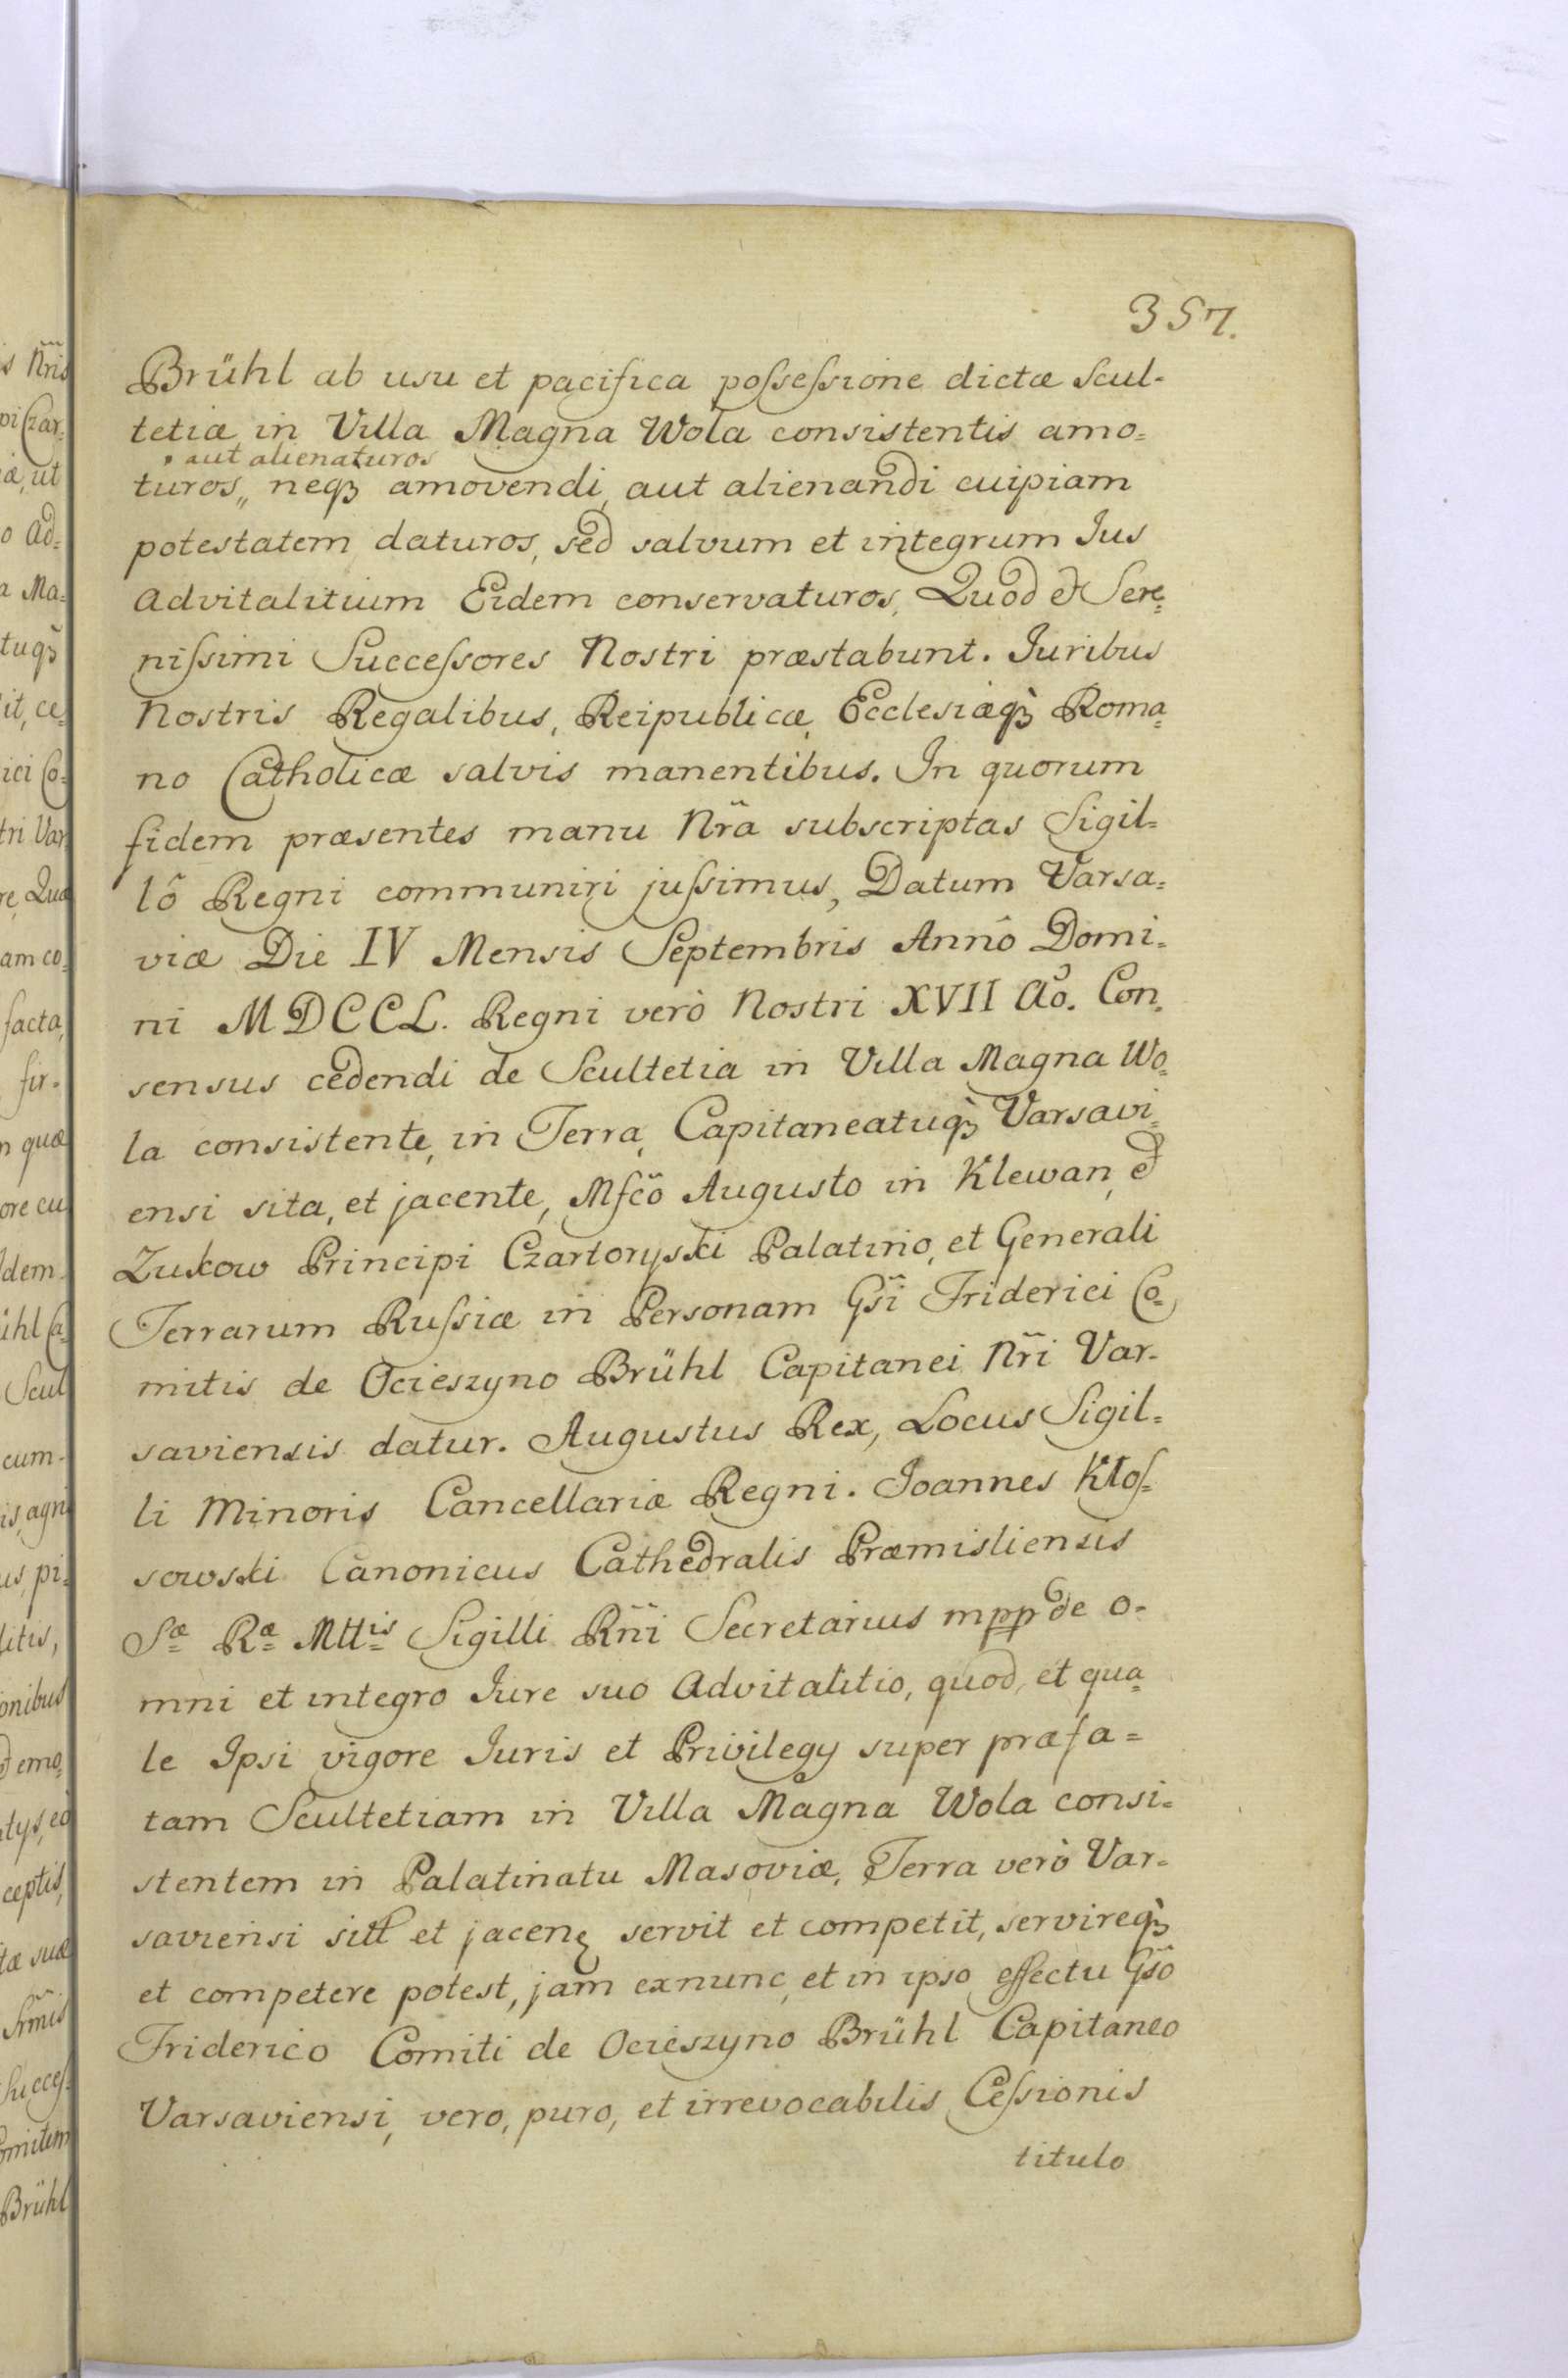 357.
Brühl ab usu et pacifica possessione dictæ Scul-
tetiæ in Villa Magna Wola consistentis amo=
aut alienaturos
turos,, neqꝫ amovendi, aut alienandi cuipiam
potestatem daturos, sed salvum et integrum Jus
Advitalitium Eidem conservaturos, Quod & Sere=
nissimi Successores Nostri præstabunt. Juribus
Nostris Regalibus, Reipublicæ, Ecclesiæqꝫ Roma=
no Catholicæ salvis manentibus. In quorum
fidem præsentes manu Nrã subscriptas Sigil=
lô Regni communiri jussimus, Datum Varsa=
viæ Die IV Mensis Septembris Annô Domi=
ni MDCCL. Regni verò Nostri XVII Aõ. Con=
sensus cedendi de Scultetia in Villa Magna Wo=
la consistente, in Terra, Capitaneatuqꝫ Varsavi=
ensi sita, et jacente, Mfcõ Augusto in Klewan, &
Zukow Principi Czartoryski Palatino, et Generali
Terrarum Russiæ in Personam Gsĩ Friderici Co=
mitis de Ocieszyno Brühl Capitanei Nrĩ Var-
saviensis datur. Augustus Rex, Locus Sigil=
li Minoris Cancellariæ Regni. Joannes Klos=
sowski Canonicus Cathedralis Præmisliensis
Sæ Ræ Mttis Sigilli Rñi Secretarius mpp de o-
mni et integro Jure suo Advitalitio, quod, et qua=
le Ipsi vigore Juris et Privilegy super præfa=
tam Scultetiam in Villa Magna Wola consi=
stentem in Palatinatu Masoviæ, Terra verò Var=
saviensi sitt et jaceñ servit et competit, servireqꝫ
et competere potest, jam exnunc, et in ipso effectu Gsõ
Friderico Comiti de Ocieszyno Brühl Capitaneo
Varsaviensi, vero, puro, et irrevocabilis Cessionis
titulo